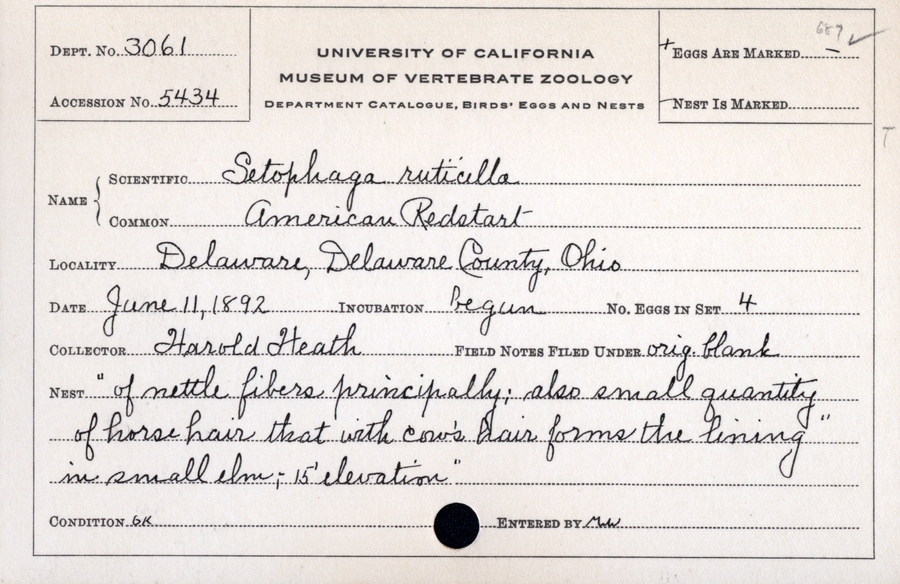 DEPT. No. 3061
ACCESSION No. 5434
UNIVERSITY OF CALIFORNIA
MUSEUM OF VERTEBRATE ZOOLOGY
DEPARTMENT CATALOGUE, BIRDS' EGGS AND NESTS
687 ✓
+ EGGS ARE MARKED –
NEST IS MARKED
T
NAME { SCIENTIFIC Setophaga ruticilla
COMMON American Redstart
LOCALITY Delaware, Delaware County, Ohio
DATE June 11, 1892 INCUBATION begun No. EGGS IN SET 4
COLLECTOR Harold Heath FIELD NOTES FILED UNDER orig. blank
NEST "of nettle fibers principally; also small quantity
of horse hair that with cow's hair forms the lining"
in small elm; 15' elevation"
CONDITION GK ENTERED BY